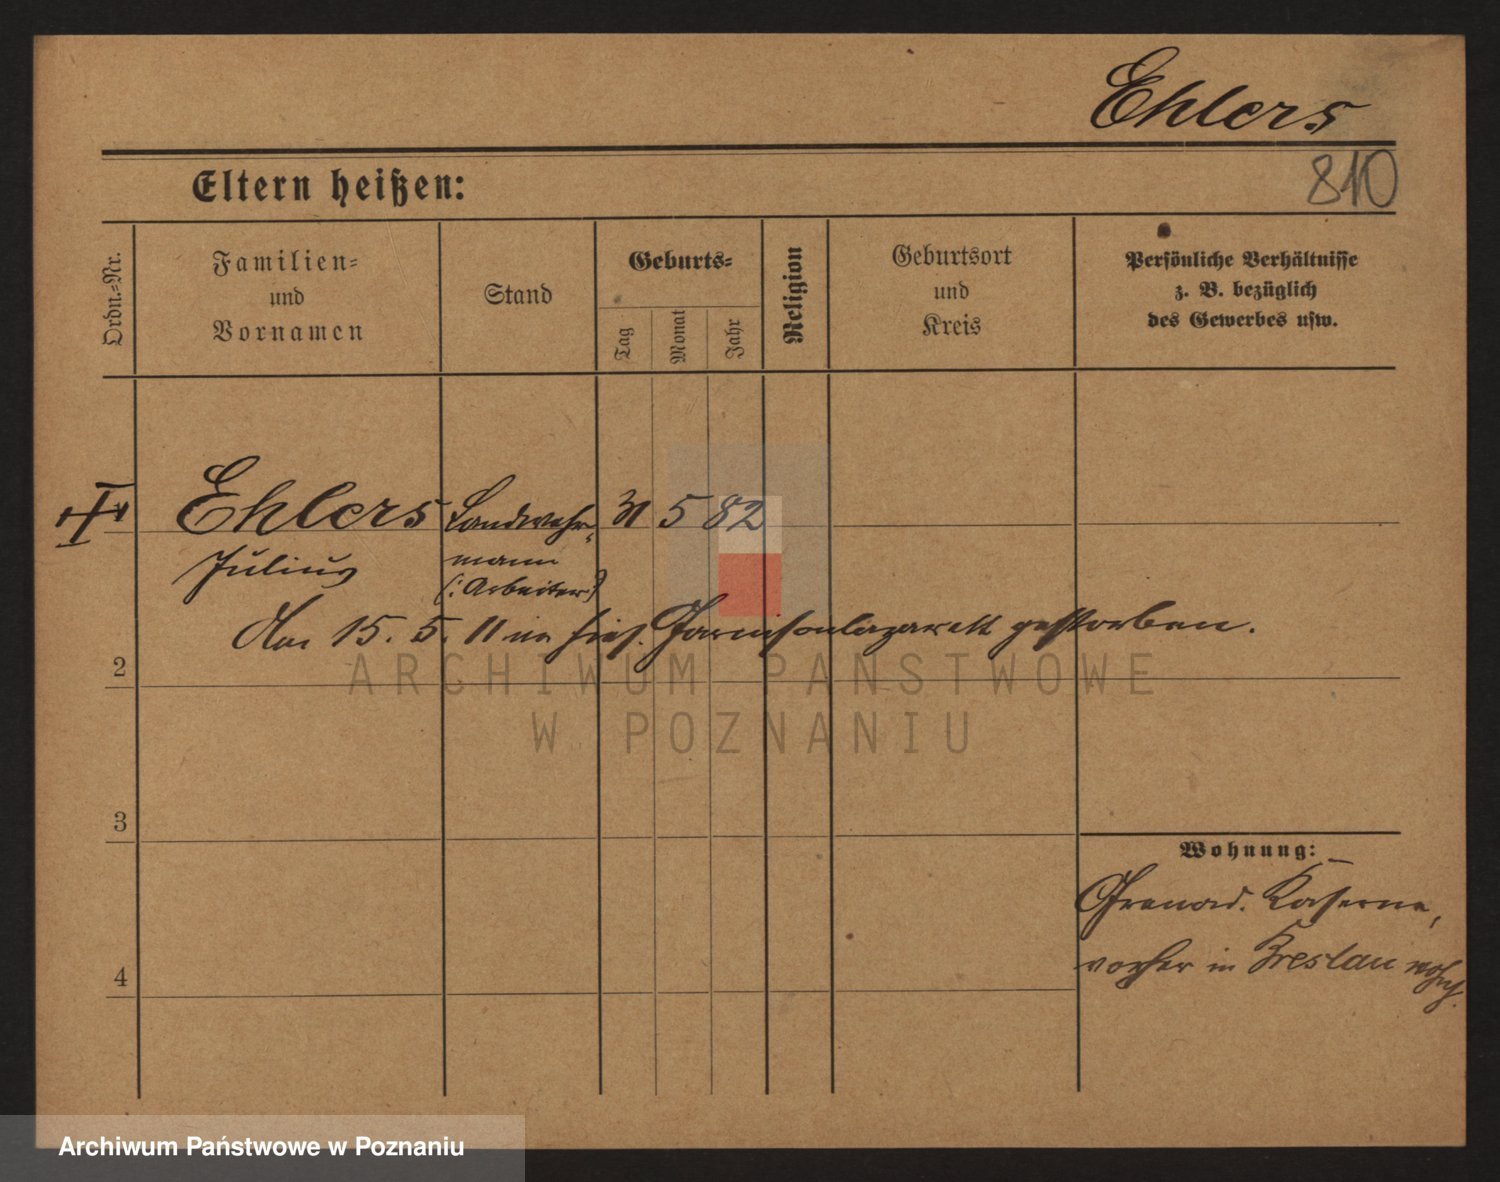 Ehlers
810
Eltern heißen:
Ordn.-Nr.
Familien-
und
Vornamen
Stand
Geburts-
Tag
Monat
Jahr
Religion
Geburtsort
und
Kreis
Persönliche Verhältnisse
z. B. bezüglich
des Gewerbes usw.
Ehlers Landwehr- 31 5 82
Julius mann
(: Arbeiter :)
Am 15. 5. 11 im hies. Garnisonlazarett gestorben.
2
ARCHIWUM PAŃSTWOWE
W POZNANIU
3
Wohnung:
Grenad. Kaserne,
vorher in Breslau wohnh.
4
Archiwum Państwowe w Poznaniu